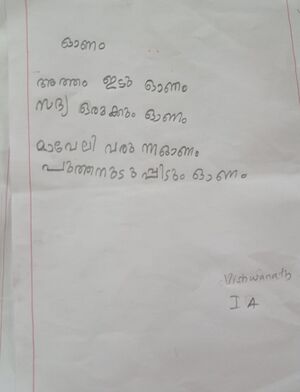 ഓണം
അത്തം ഇടും ഓണം
സദ്യ ഒരുക്കും ഓണം
മാവേലി വരുന്നഓണം
പുത്തനുടുപ്പിടും ഓണം
Vishwanath
I A